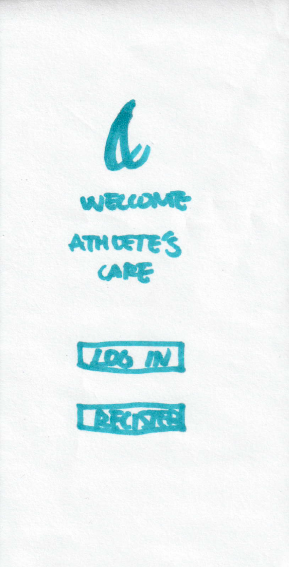 WELCOME
ATHLETE'S
CARE
LOG IN
REGISTER